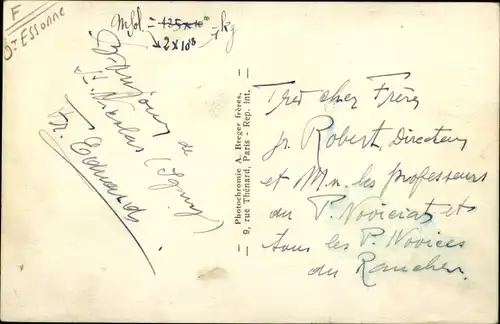 F
Dt Essonne
Mfol. = 125x10⁸
→ 2x10⁸ → kg
Bonjour de
St Nicolas (Igny)
fr. Edouards
Photochromie A. Breger frères.
9, rue Thénard, Paris - Rep. int.
Très cher Frère
fr. Robert, Directeur
et M.n. les professeurs
du P. Noviciat et
tous les P. Novices
du Rancher.